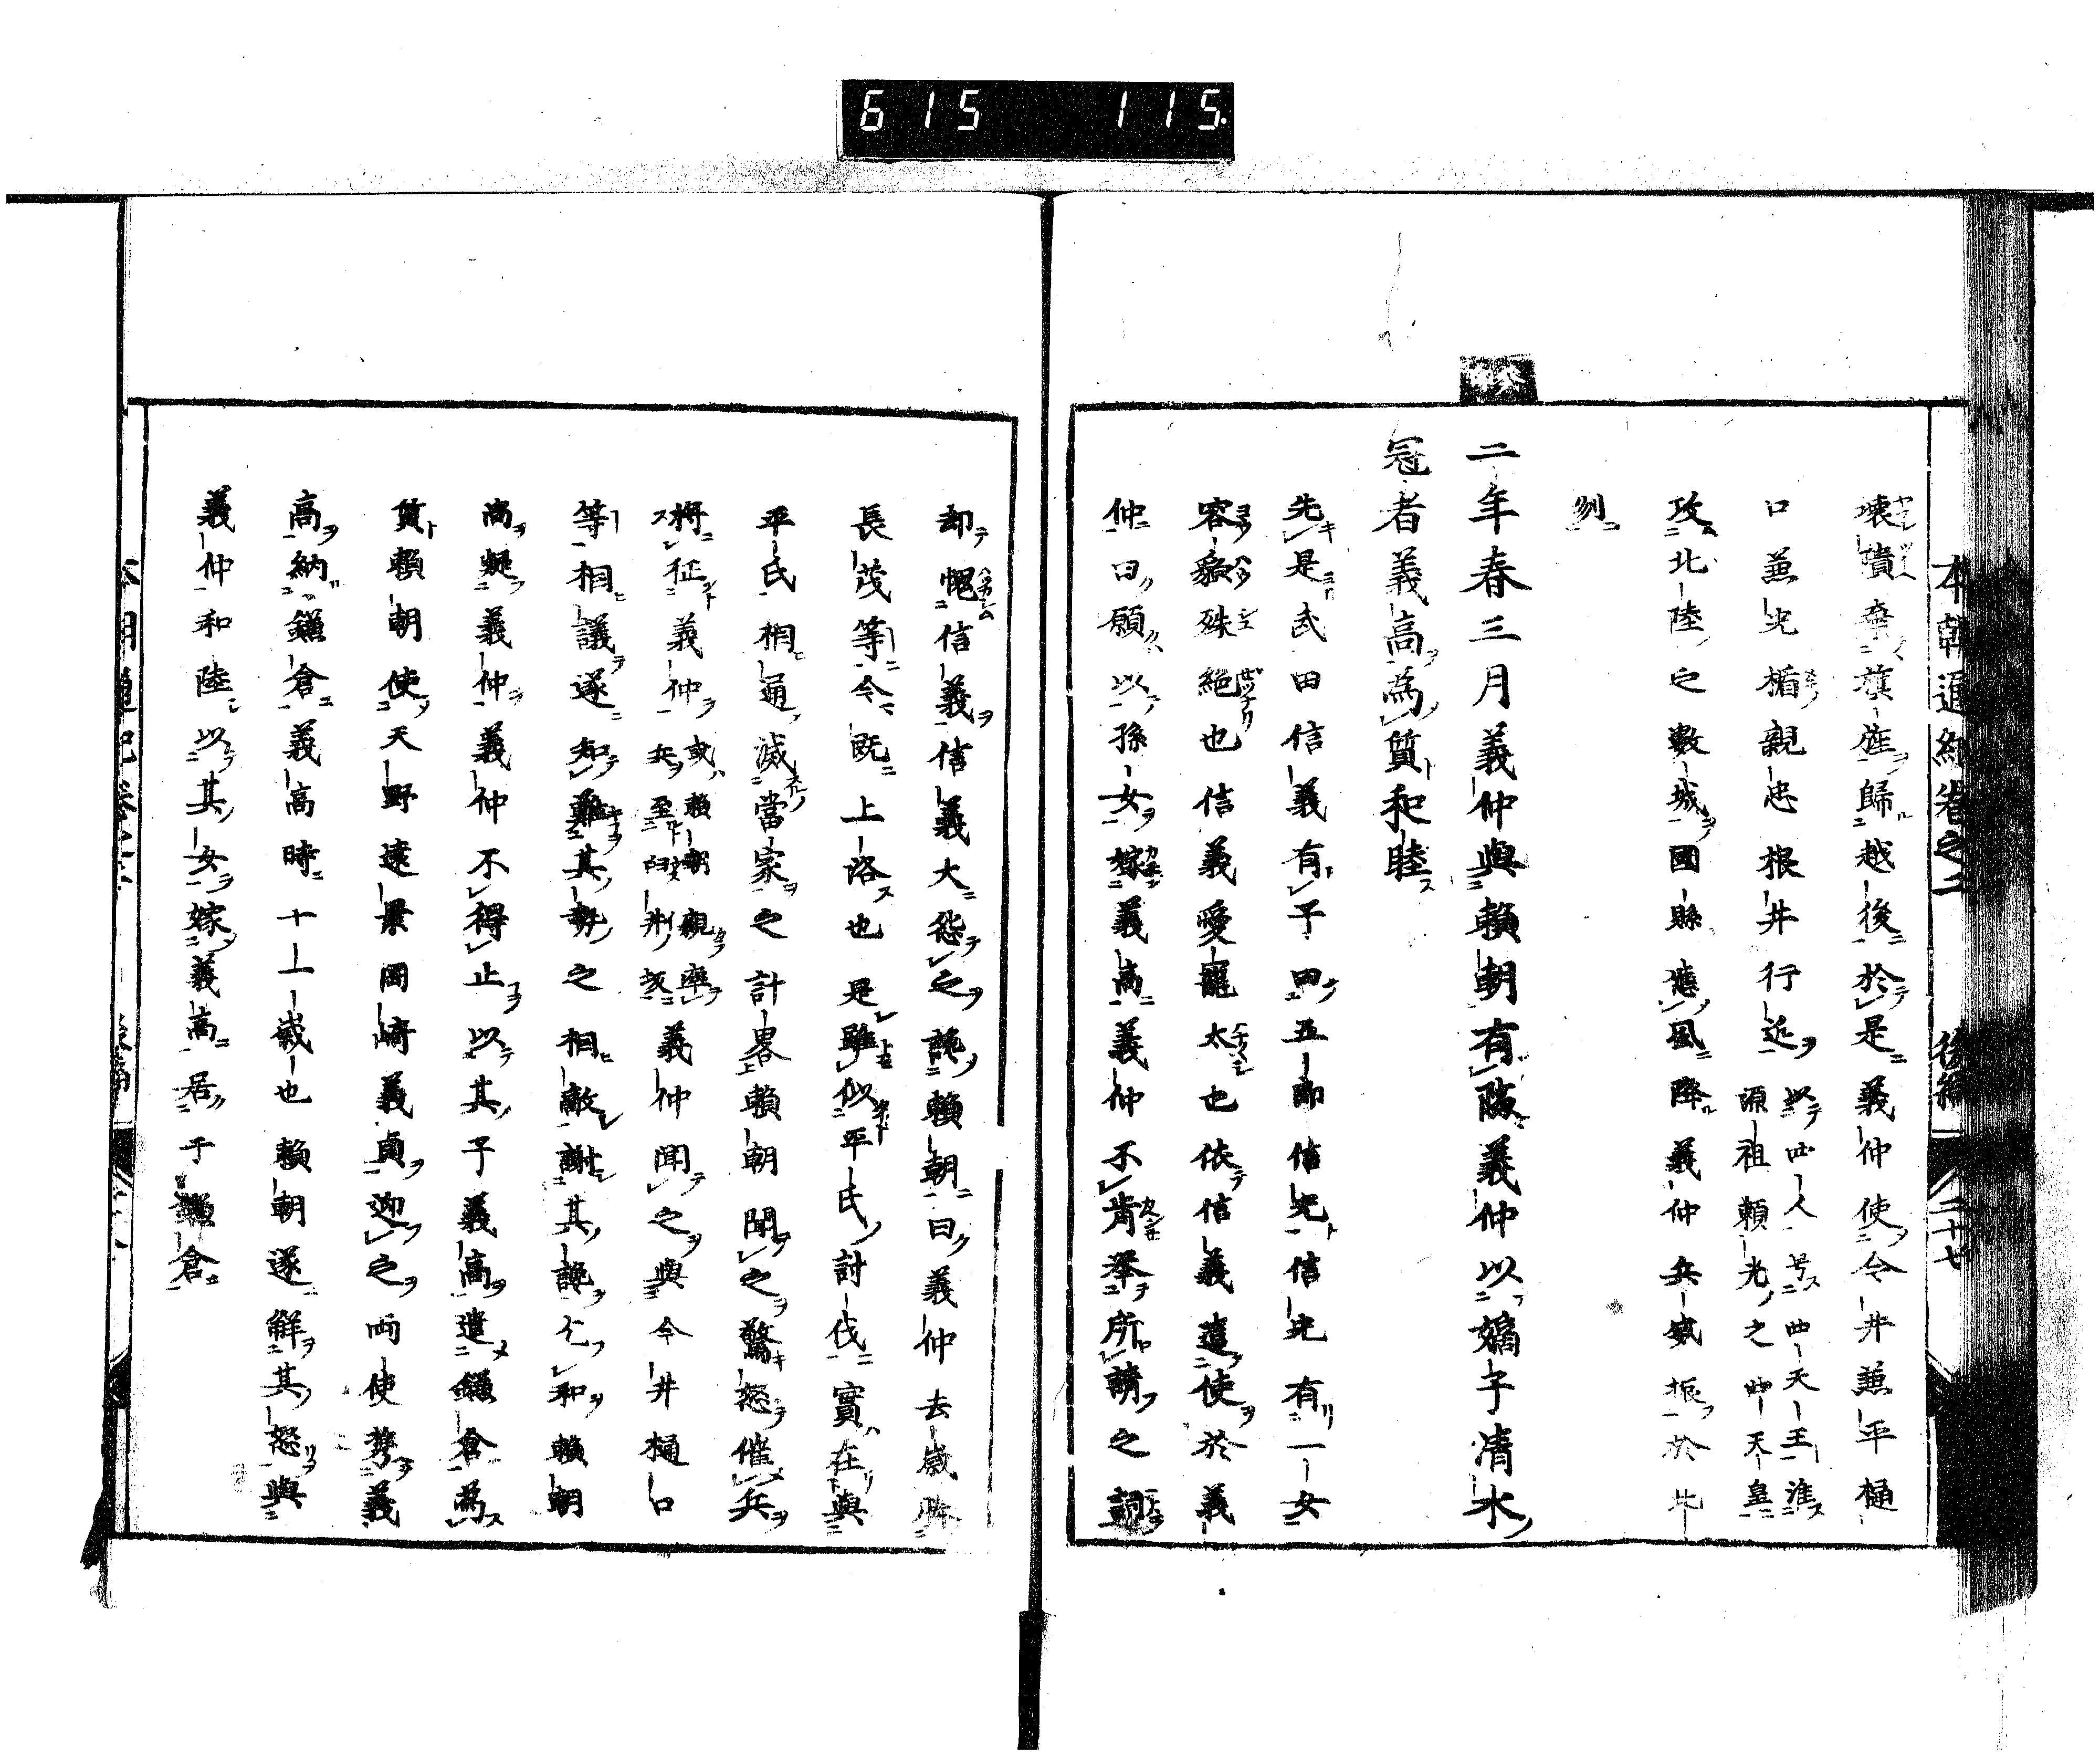 615 115
本朝通紀卷之二 後編 二十七
壊潰棄旗旌歸越後於是義仲使令井兼平樋
口兼光楯親忠根井行近以四人号四天王准源祖頼光之四天皇
攻北陸之數城國縣應風降義仲兵威振於北
刕
二年春三月義仲與頼朝有隙義仲以嫡子清水
冠者義高為質和睦
先是武田信義有子曰五郎信光信光有一女
容貌殊絶也信義愛寵太也依信義遣使於義
仲曰願以孫女嫁義高義仲不肯举所請之詞
却愧信義信義大怨之讒頼朝曰義仲去歳與
長茂等今既上洛也是雖似平氏討伐實在與
平氏相通滅當家之計畧頼朝聞之驚怒催兵
将征義仲或頼朝親率兵至臼井坂義仲聞之與今井樋口
等相議遂知難其勢之相敵謝其讒乞和頼朝
尚疑義仲義仲不得止以其子義高遣鎌倉為
質頼朝使天野遠景岡崎義貞迎之両使携義
高納鎌倉義高時十一歳也頼朝遂解其怒與
義仲和陸以其女嫁義高居于鎌倉